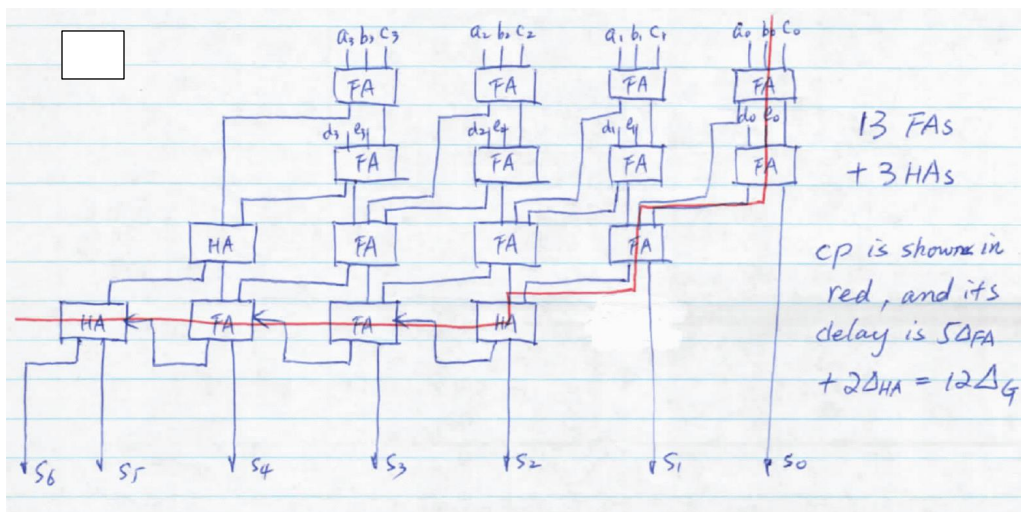 a3 b3 c3 a2 b2 c2 a1 b1 c1 a0 b0 c0
FA FA FA FA
d3 e3 d2 e2 d1 e1 d0 e0
FA FA FA FA
HA FA FA FA
HA FA FA HA
S6 S5 S4 S3 S2 S1 S0
13 FAs
+ 3 HAs
cp is shown in
red, and its
delay is 5ΔFA
+ 2ΔHA = 12ΔG